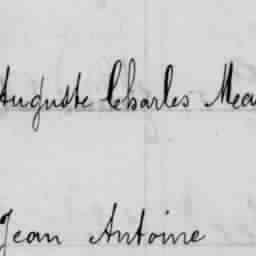 Auguste Charles Mea
Jean Antoine